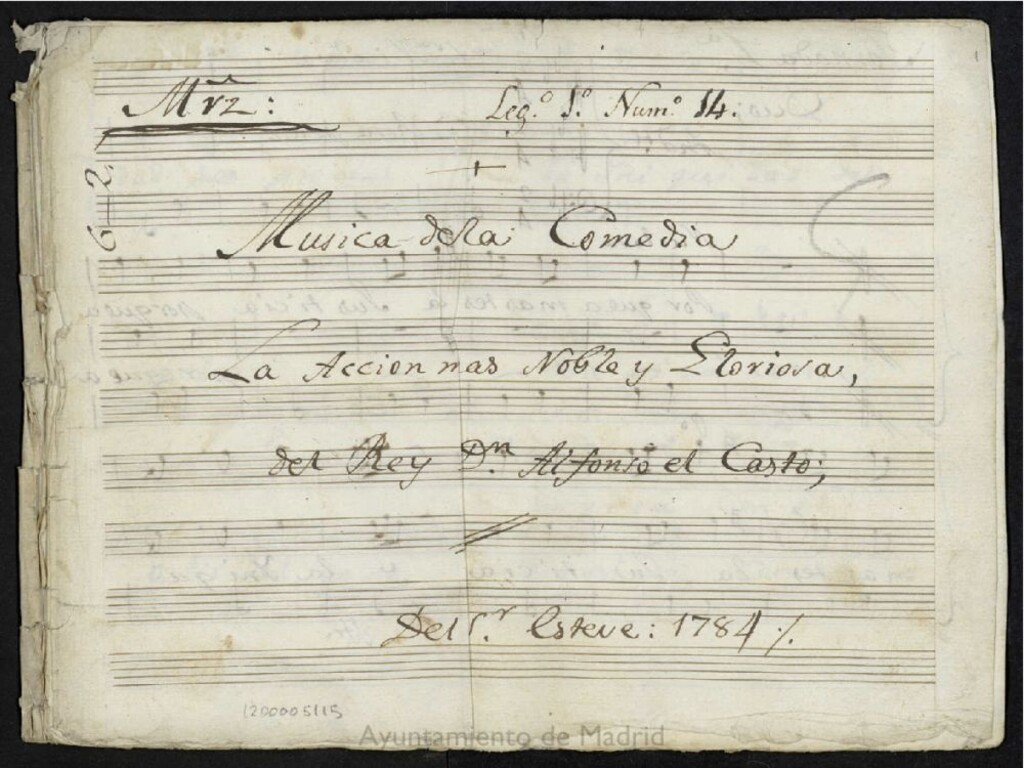 Mrz:
Leg.º 1.º Num.º 14.
6-2,
+
Musica dela Comedia
La Accion mas Noble y Gloriosa,
del Rey D.n Alfonso el Casto;
Del S.r Esteve: 1784 %
1200005115
Ayuntamiento de Madrid